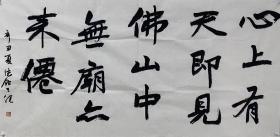 心上有
天即見
佛山中
無廟亦
来僊
辛丑夏